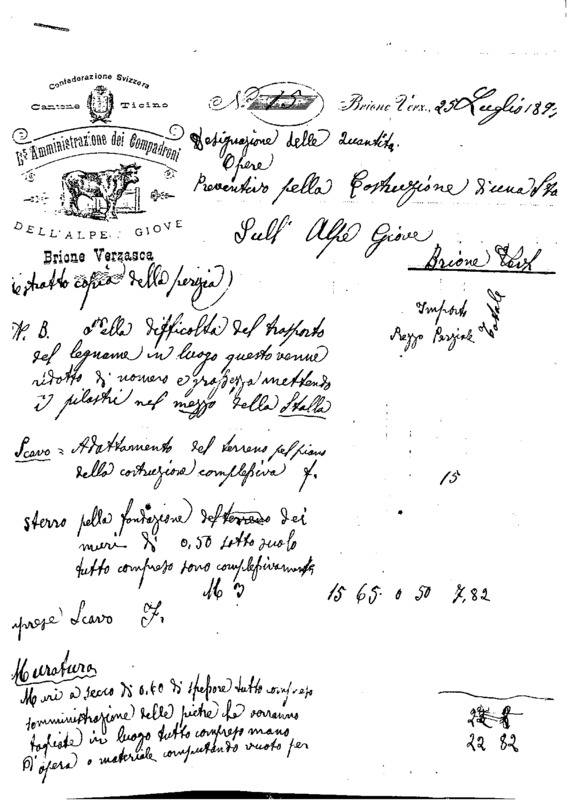 Confederazione Svizzera
Cantone Ticino
L' Amministrazione dei Compadroni
DELL'ALPE GIOVE
Brione Verzasca
N.º 15. Brione Verz., 25 Luglio 189
Designazione delle Quantita.
Opere
Preventivo pella Costruzione di una Sta
Sull' Alpe Giove
Brione Verz
(estratto copia della perizia)
Importo
Prezzo Parziale Totale
N. B. della difficolta del trasporto
del legname in luogo questo venne
ridotto di nomero e grossezza mettendo
i pilastri nel mezzo della Stalla
Scavo = Adattamento del terreno pel piano
della costruzione complessiva f. 15
sterro pella fondazione del terreno dei
muri di 0,50 sotto suolo
tutto compreso sono complessivamente
M 3 15 65 0 50 7,82
Scavo F.
Muratura
Muri a secco di 0.60 di spessore tutto compreso
somministrazione delle pietre che vorranno
tagliate in luogo tutto compreso mano
d'opera e materiale computando vuoto per
22 82